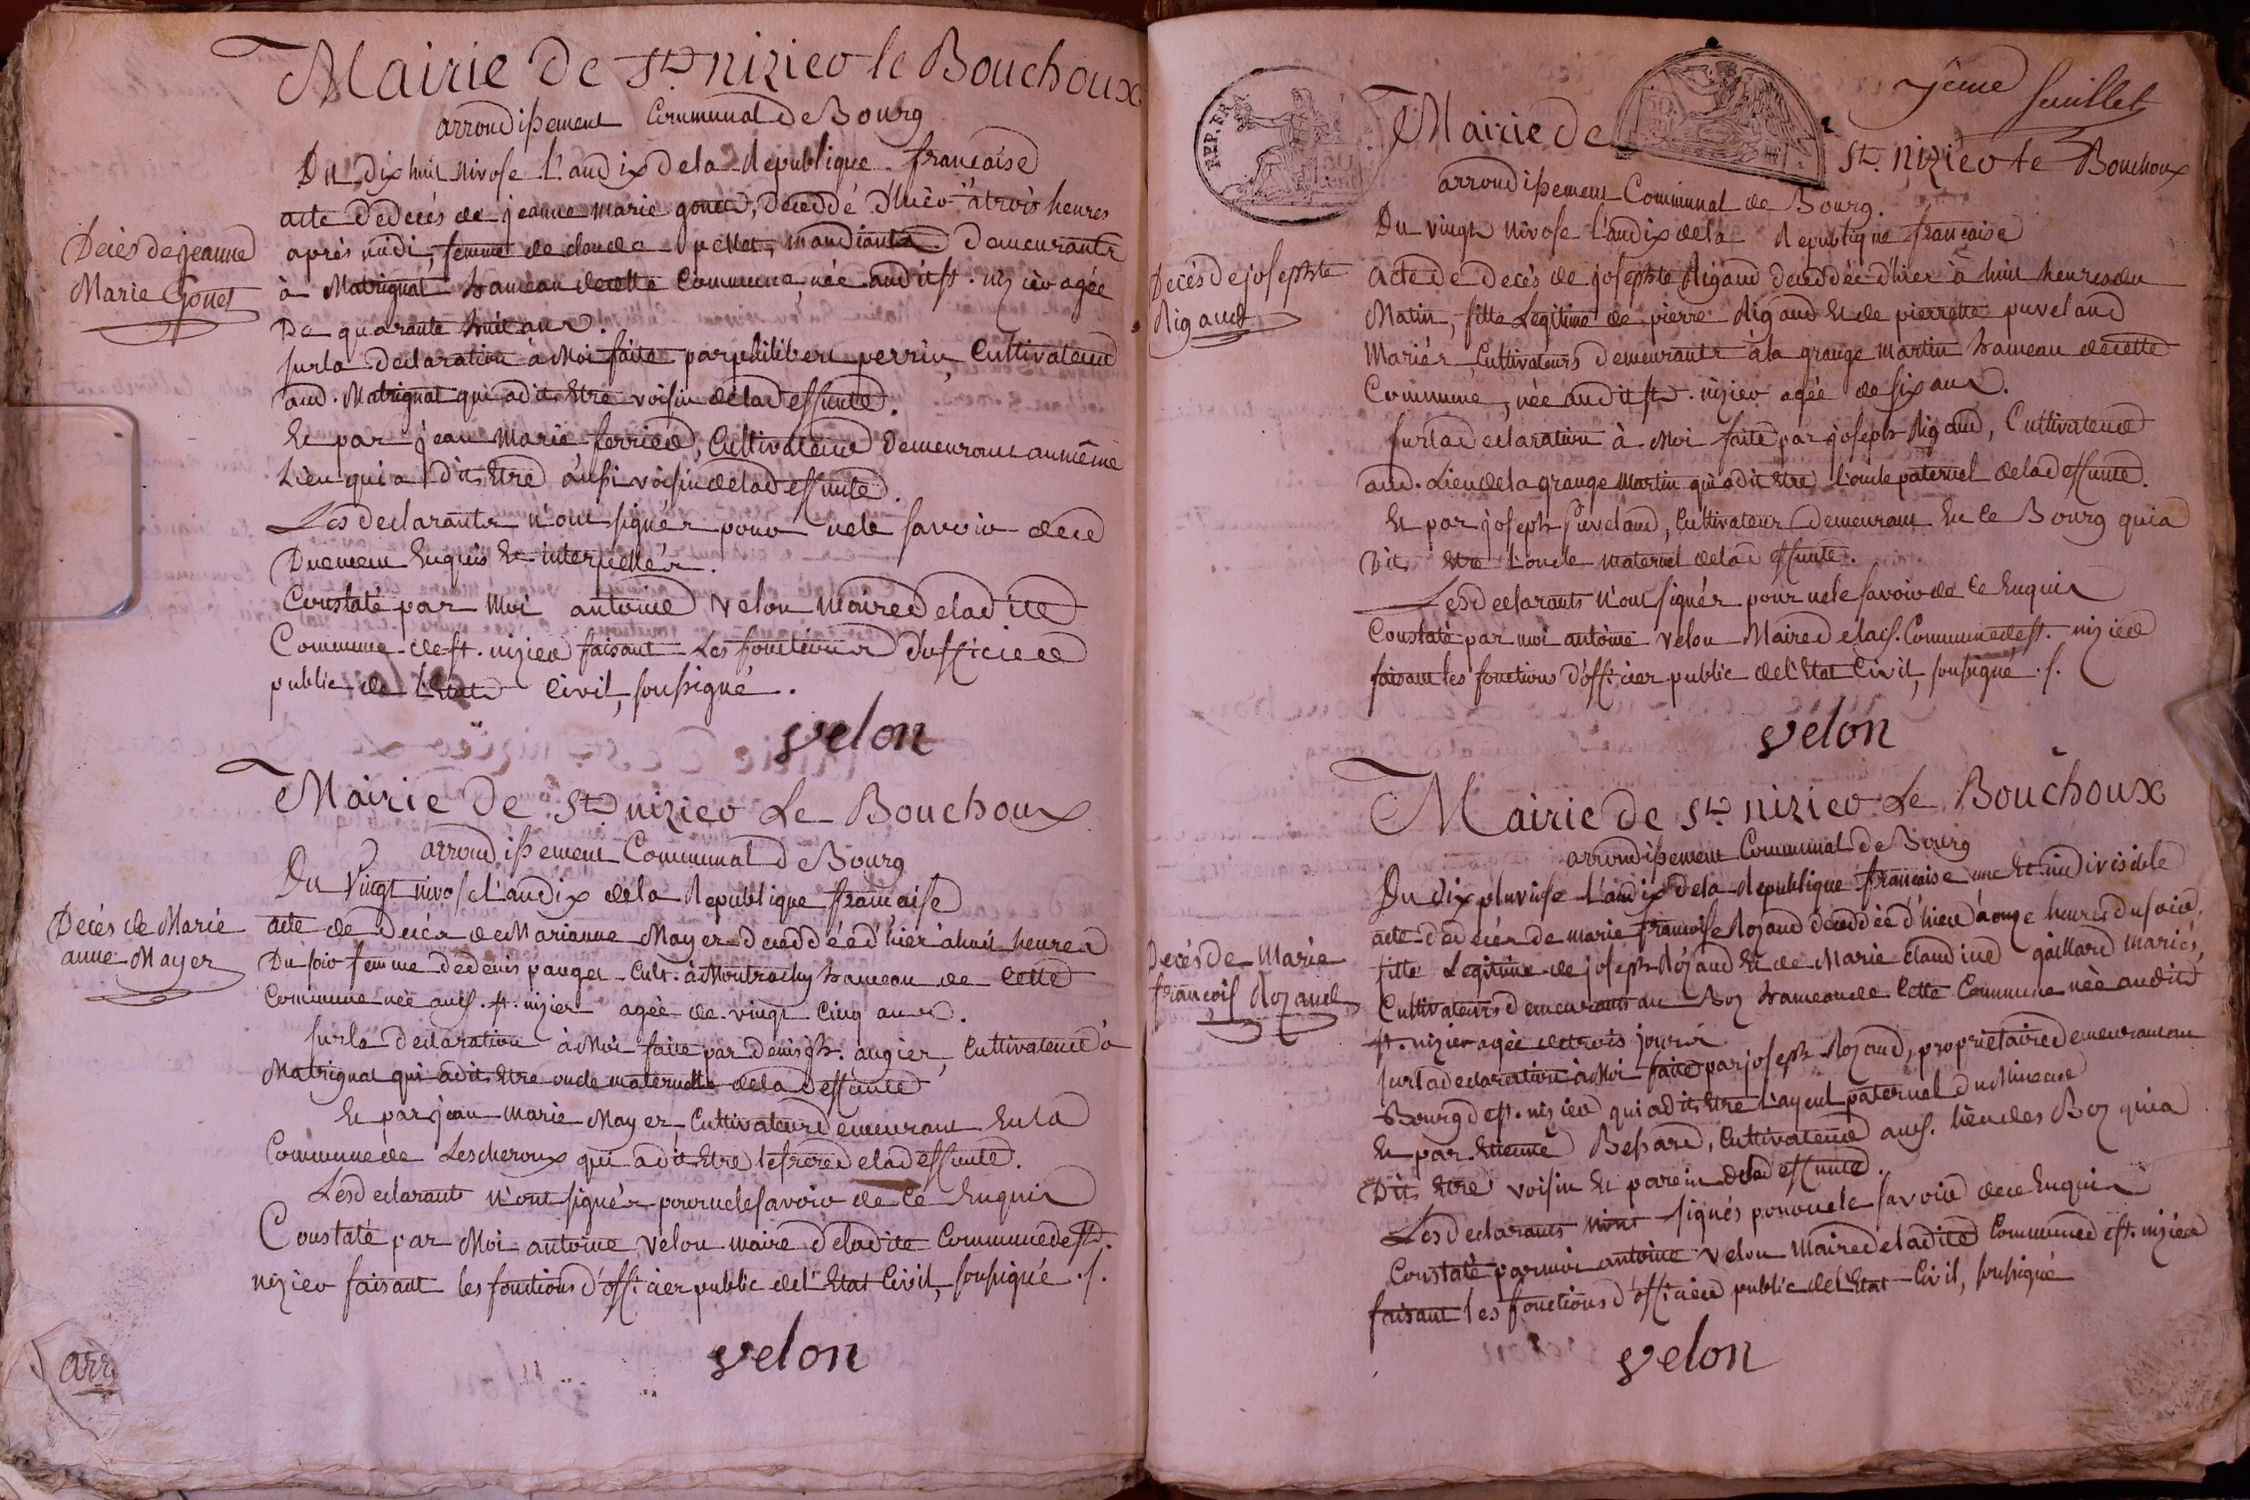 Mairie de St. nizier le Bouchoux
arrondissement Communal de Bourg
Du dix huit nivose l'an dix de la Republique francaise
acte de decés de jeanne marie gonet, deceddé d'hier à trois heures
après midi, femme de claude pellet, mandiants demeurants
à Matrignat hameau de cette Commune, née audit st. nizier agée
De quarante huit ans.
sur la declaration à Moi faite par philibert perrin, Cultivateur
aud. Matrignat qui a dit Etre voisin de la deffunte.
Et par jean Marie ferrier, Cultivateur demeurant au même
Lieu qui a dit Etre aussi voisin de la deffunte.
Les declarants n'ont signés pour ne le savoir de ce
Duement Enquis Et interpellés.
Constaté par Moi antoine velon maire de la dite
Commune de st. nizier faisant Les fonctions d'officier
public de l'Etat Civil, soussigné.
velon
Decès de jeanne
Marie Gonet
Mairie de St. nizier Le Bouchoux
arrondissement Communal de Bourg
Du Vingt nivose l'an dix de la Republique francaise
acte de decés de Marianne Mayer deceddée d'hier à huit heures
Du soir femme de denis pauget Cult. à Montrachy hameau de cette
Commune née aud. st. nizier agée de vingt Cinq ans.
sur la declaration à Moi faite par denis jh. augier, Cultivateur à
Matrignat qui a dit Etre oncle maternelle de la deffunte
Et par jean Marie Mayer, Cultivateur demeurant En la
Commune de Lescheroux qui a dit Etre le frere de la deffunte.
Les declarants n'ont signés pour ne le savoir de ce Enquis
Constaté par Moi antoine velon maire de la dite Commune de st.
nizier faisant les fonctions d'officier public de l'Etat Civil, soussigné .s.
velon
Decés de Marie
anne Mayer
arr
REP. FRA.
7ème feuillet
Mairie de St. Nizier le Bouchoux
arrondissement Communal de Bourg.
Du vingt nivose l'an dix de la Republique francaise
acte de decés de josephte Rigaud deceddée d'hier à huit heures du
Matin, fille Legitime de pierre Rigaud Et de pierrette puveland
Mariés, Cultivateurs demeurants à la grange martin hameau de cette
Commune, née audit st. nizier agée de six ans.
sur la declaration à Moi faite par joseph Rigaud, Cultivateur
aud. Lieu de la grange Martin qui a dit Etre l'oncle paternel de la deffunte.
Et par joseph Puveland, Cultivateur demeurant En ce Bourg qui a
Dit Etre l'oncle maternel de la deffunte.
Les declarants n'ont signés pour ne le savoir de ce Enquis
Constaté par moi antoine velon Maire de la dite Commune de st. nizier
faisant les fonctions d'officier public de l'Etat Civil, soussigné .s.
velon
Decés de josephte
Rigaud
Mairie de St. nizier Le Bouchoux
arrondissement Communal de Bourg
Du dix pluviose l'an dix de la Republique francaise une Et indivisible
acte de decés de marie francoise Rozand deceddée d'hier à onze heures du soir,
fille Legitime de joseph Rozand Et de Marie claudine gaillard mariés,
Cultivateurs demeurants au Boz hameau de cette Commune née audit
st. nizier agée de trois jours
sur la declaration à Moi faite par joseph Rozand, proprietaire demeurant au
Bourg de st. nizier qui a dit Etre l'ayeul paternel du mineur
Et par Etienne Bessard, Cultivateur aud. lieu des Boz qui a
Dit Etre voisin Et parein de la deffunte.
Les declarants n'ont signés pour ne le savoir de ce Enquis
Constaté par moi antoine velon Maire de la dite Commune de st. nizier
faisant les fonctions d'officier public de l'Etat Civil, soussigné
velon
Decés de Marie
françois Rozand